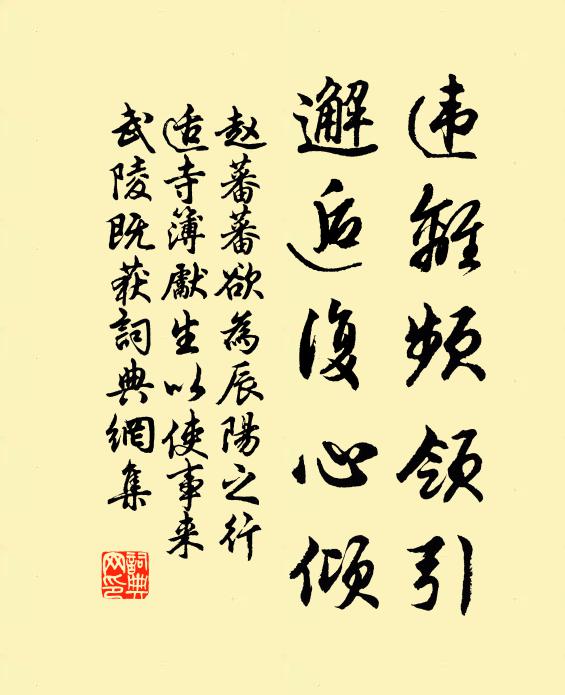 违離頻领引
邂逅復心倾
赵蕃蕃欲為辰陽之行
适寺簿獻生以使事来
武陵既获詞典網集
詞典网印